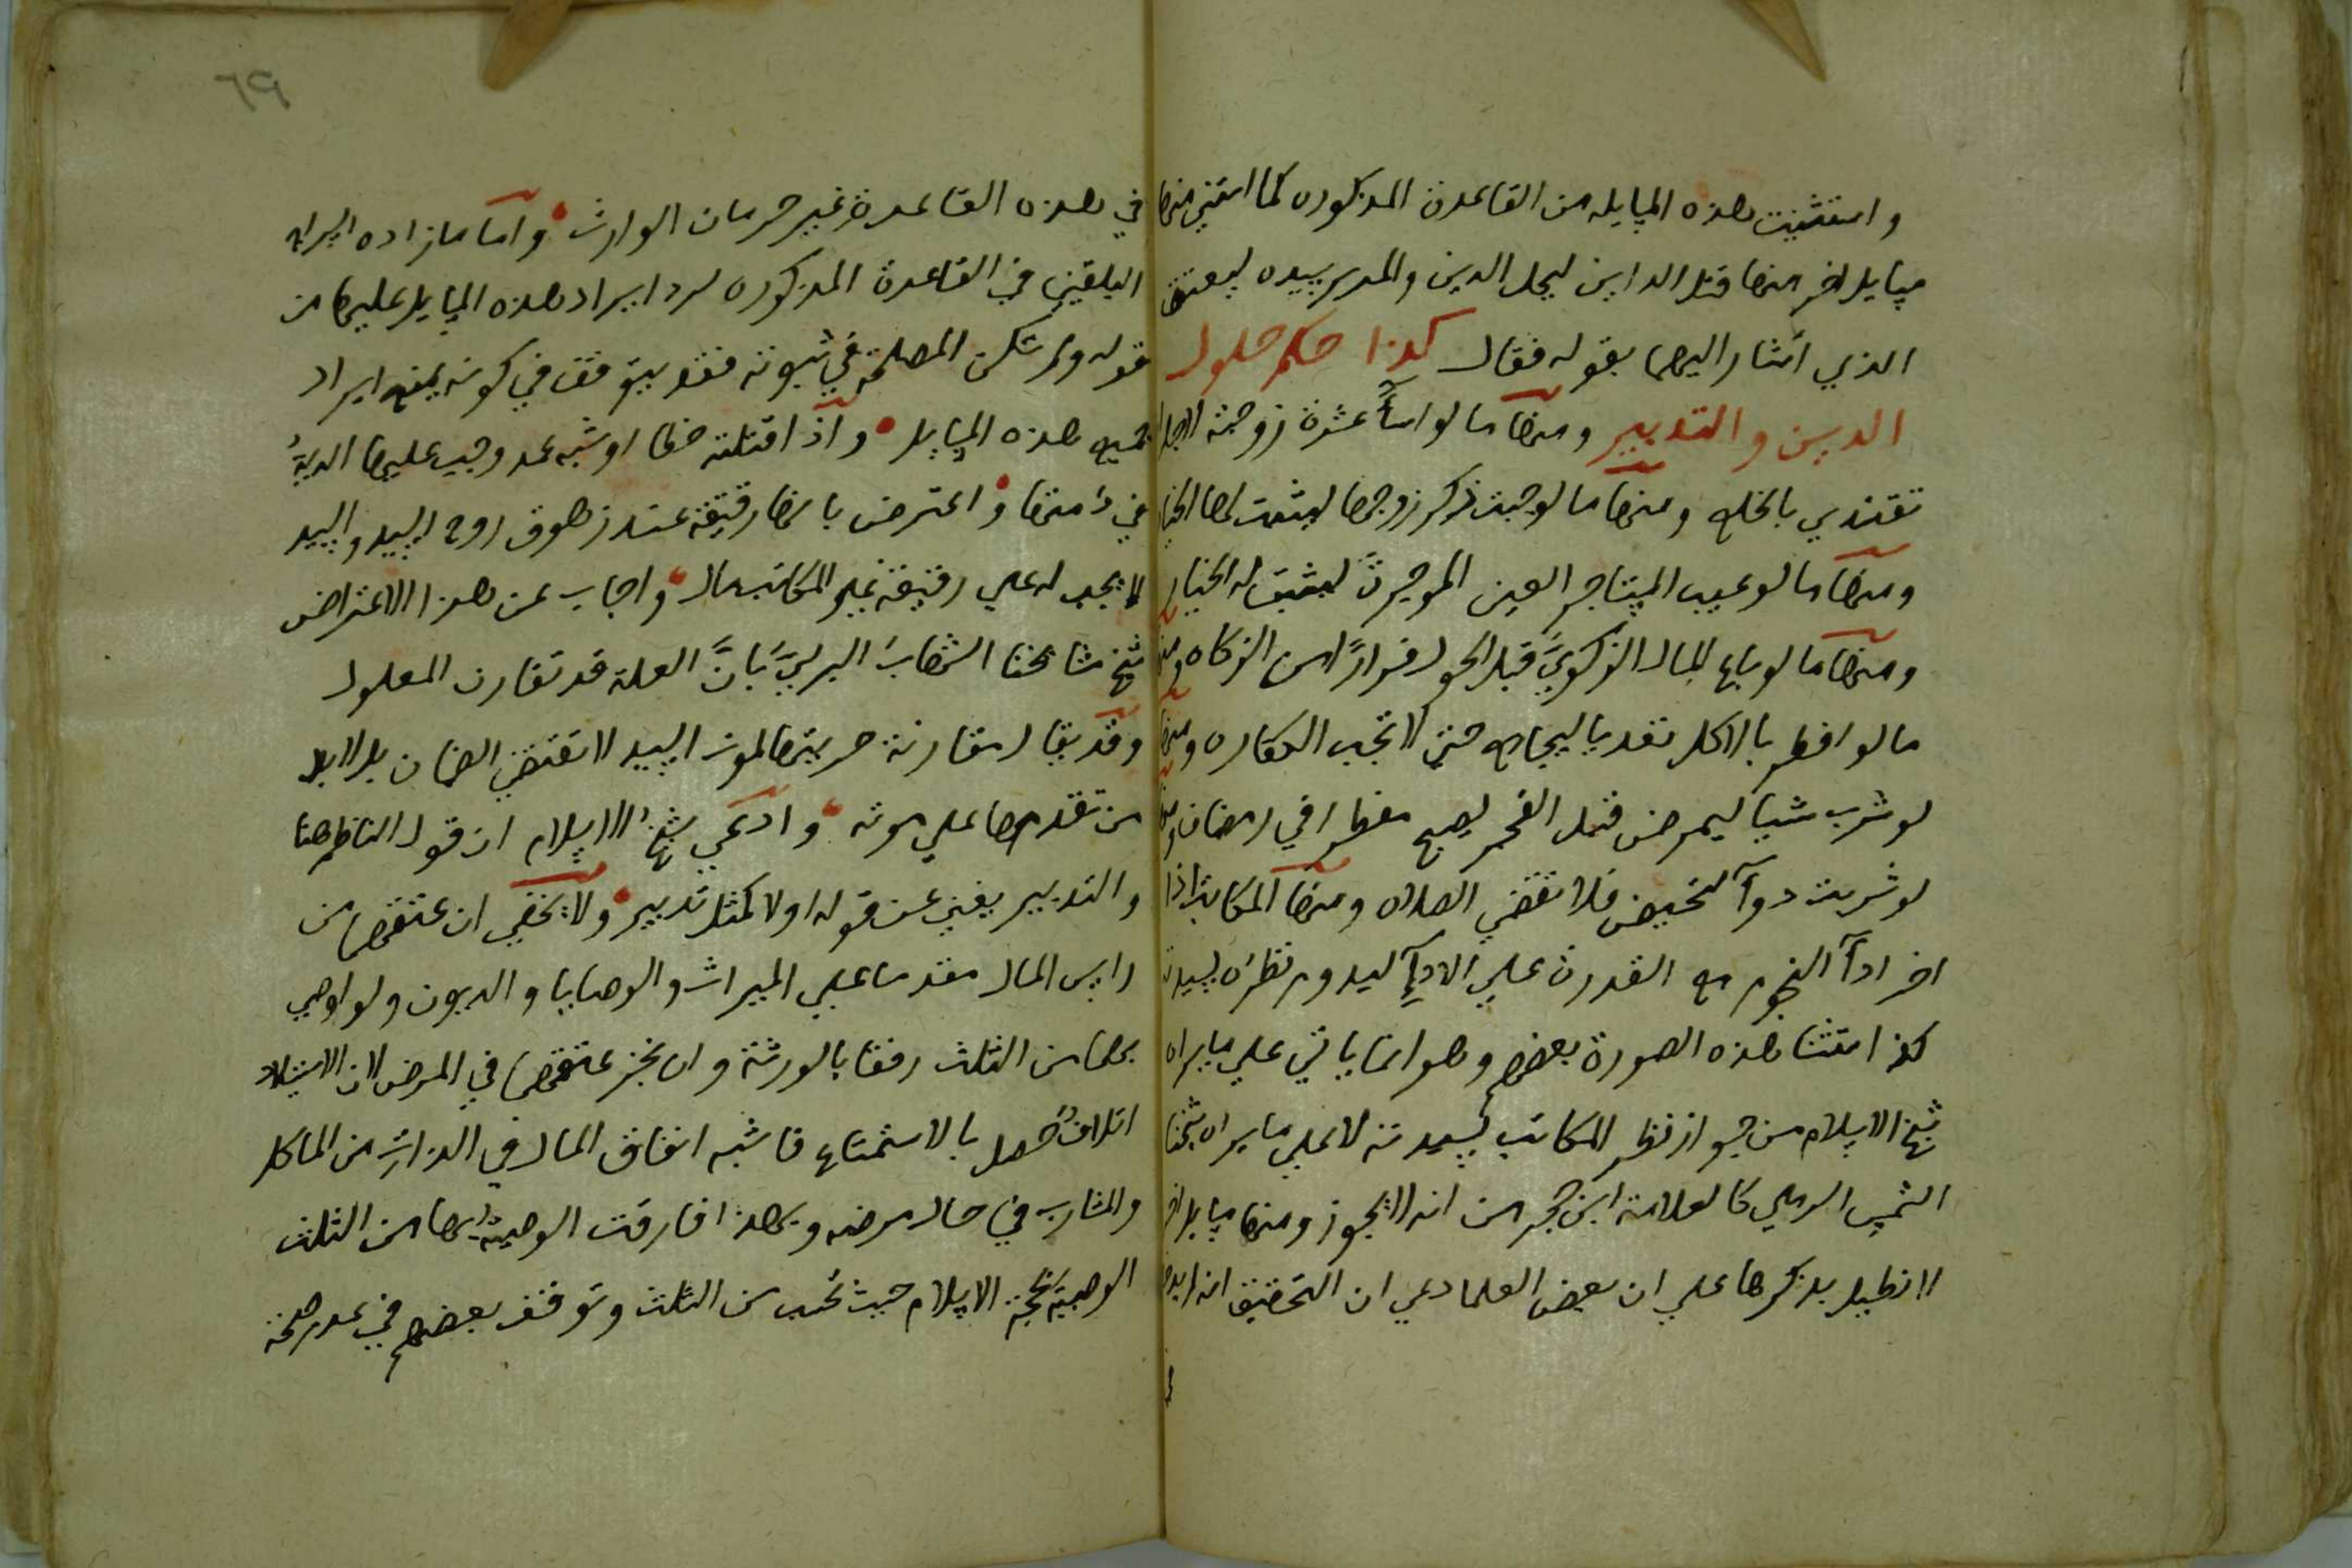 واستثنيت هذه المسايله من القاعدة المذكوره كما استثني منها
مسايل اخر منها قتل الداين ليحل الدين والمدبر سيده ليعتق
الذي اشار اليهما بقوله فقال كذا حكم حلول
الدين والتدبير ومنها ما لو اسآ عشرة زوجته لاجل
تفتدي بالخلع ومنها ما لو جبت ذكر زوجها ليثبت لها الخيار
ومنها ما لو عيب المستاجر العين الموجرة ليثبت له الخيار
ومنها ما لو باع المال الزكوي قبل الحول فرارا من الزكاه ومنها
ما لو افطر بالاكل تعديا ليجامع حتي لا تجب الكفاره ومنها
لو شرب شيا ليمرض قبل الفجر ليصبح مفطرا في رمضان ومنها
لو شربت دوآ لتحيض فلا تقضي الصلاه ومنها المكاتب اذا
اخر ادآ النجوم مع القدرة علي الادآ ليدوم نظره لسيدته
كذا استثنا هذه الصورة بعضهم وهو انما ياتي علي ما يراه
شيخ الاسلام من جواز نظر المكاتب لسيدته لا علي ما يراه شيخنا
الشمس الرملي كالعلامة ابن حجر من انه لا يجوز ومنها مسايل اخر
لا نطيل بذكرها علي ان بعض العلما دعي ان التحقيق انه لا يدخل
٦٩
في هذه القاعدة غير حرمان الوارث واما ما زاده السراج
البلقيني في القاعدة المذكوره لرد ايراد هذه المسايل عليها من
قوله ولم تكن المصلحة في ثبوته فقد يتوقف في كونه يمنع ايراد
جميع هذه المسايل واذا قتلته خطا او شبه عمد وجبت عليها الدية
في ذمتها واعترض بانها رقيقة عند زهوق روح السيد والسيد
لا يجب له علي رقيقه غير المكاتب مال واجاب عن هذا الاعتراض
شيخ مشايخنا الشهاب البرلسي بان العلة قد تقارن المعلول
وقد يقال مقارنة حريتها لموت السيد لا تقتضي الضمان بل لا بد
من تقدمها علي موته وادعي شيخ الاسلام ان قول الناظم هنا
والتدبير يغني عن قوله اولا كمثل تدبير ولا يخفي ان عتقها من
راس المال مقدما علي الميراث والوصايا والديون ولو اوصي
بها من الثلث رفقا بالورثة وان نجز عتقها في المرض لان الاستيلاد
اتلاف حصل بالاستمتاع فاشبه انفاق المال في اللذات من الماكل
والمشارب في حال مرضه وبهذا فارقت الوصية بها من الثلث
الوصية بحجة الاسلام حيث تحسب من الثلث وتوقف بعضهم في عدم صحة